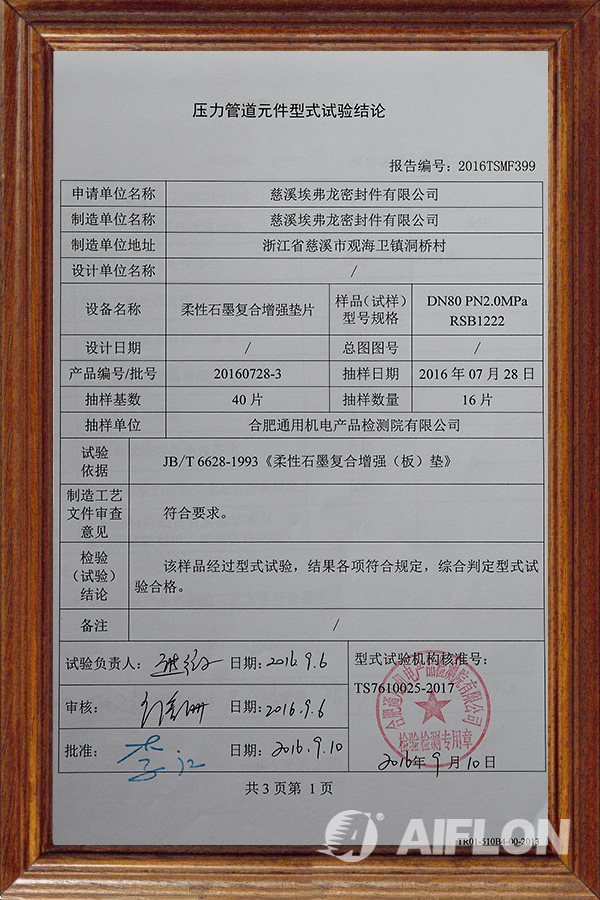 压力管道元件型式试验结论
报告编号：2016TSMF399
申请单位名称 慈溪埃弗龙密封件有限公司
制造单位名称 慈溪埃弗龙密封件有限公司
制造单位地址 浙江省慈溪市观海卫镇洞桥村
设计单位名称 /
设备名称 柔性石墨复合增强垫片 样品（试样）型号规格 DN80 PN2.0MPa
RSB1222
设计日期 / 总图图号 /
产品编号/批号 20160728-3 抽样日期 2016 年 07 月 28 日
抽样基数 40 片 抽样数量 16 片
抽样单位 合肥通用机电产品检测院有限公司
试验
依据 JB/T 6628-1993《柔性石墨复合增强（板）垫》
制造工艺
文件审查
意见 符合要求。
检验
（试验）
结论 该样品经过型式试验，结果各项符合规定，综合判定型式试
验合格。
备注 /
试验负责人： 日期：2016.9.6 型式试验机构核准号：
TS7610025-2017
审核： 日期：2016.9.6
批准：李江 日期：2016.9.10
合肥通用机电产品检测院有限公司
检验检测专用章
2016年9月10日
共 3 页第 1 页
AIFLON
TR01-510B4-00-2013